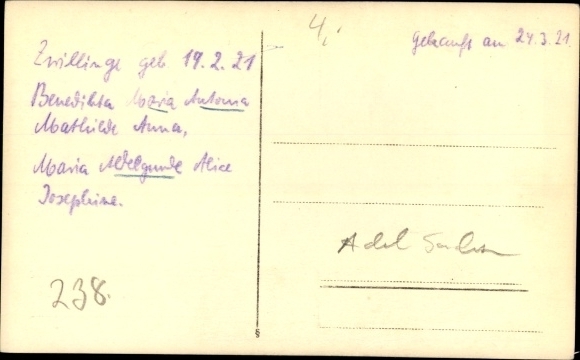 Zwillinge geb 19.2.21
Benedikta Maria Antonia
Mathilde Anna,
Maria Aldegunde Alice
Josephine.
238.
4,-
gekauft am 24.3.21.
Adel Sachsen
§